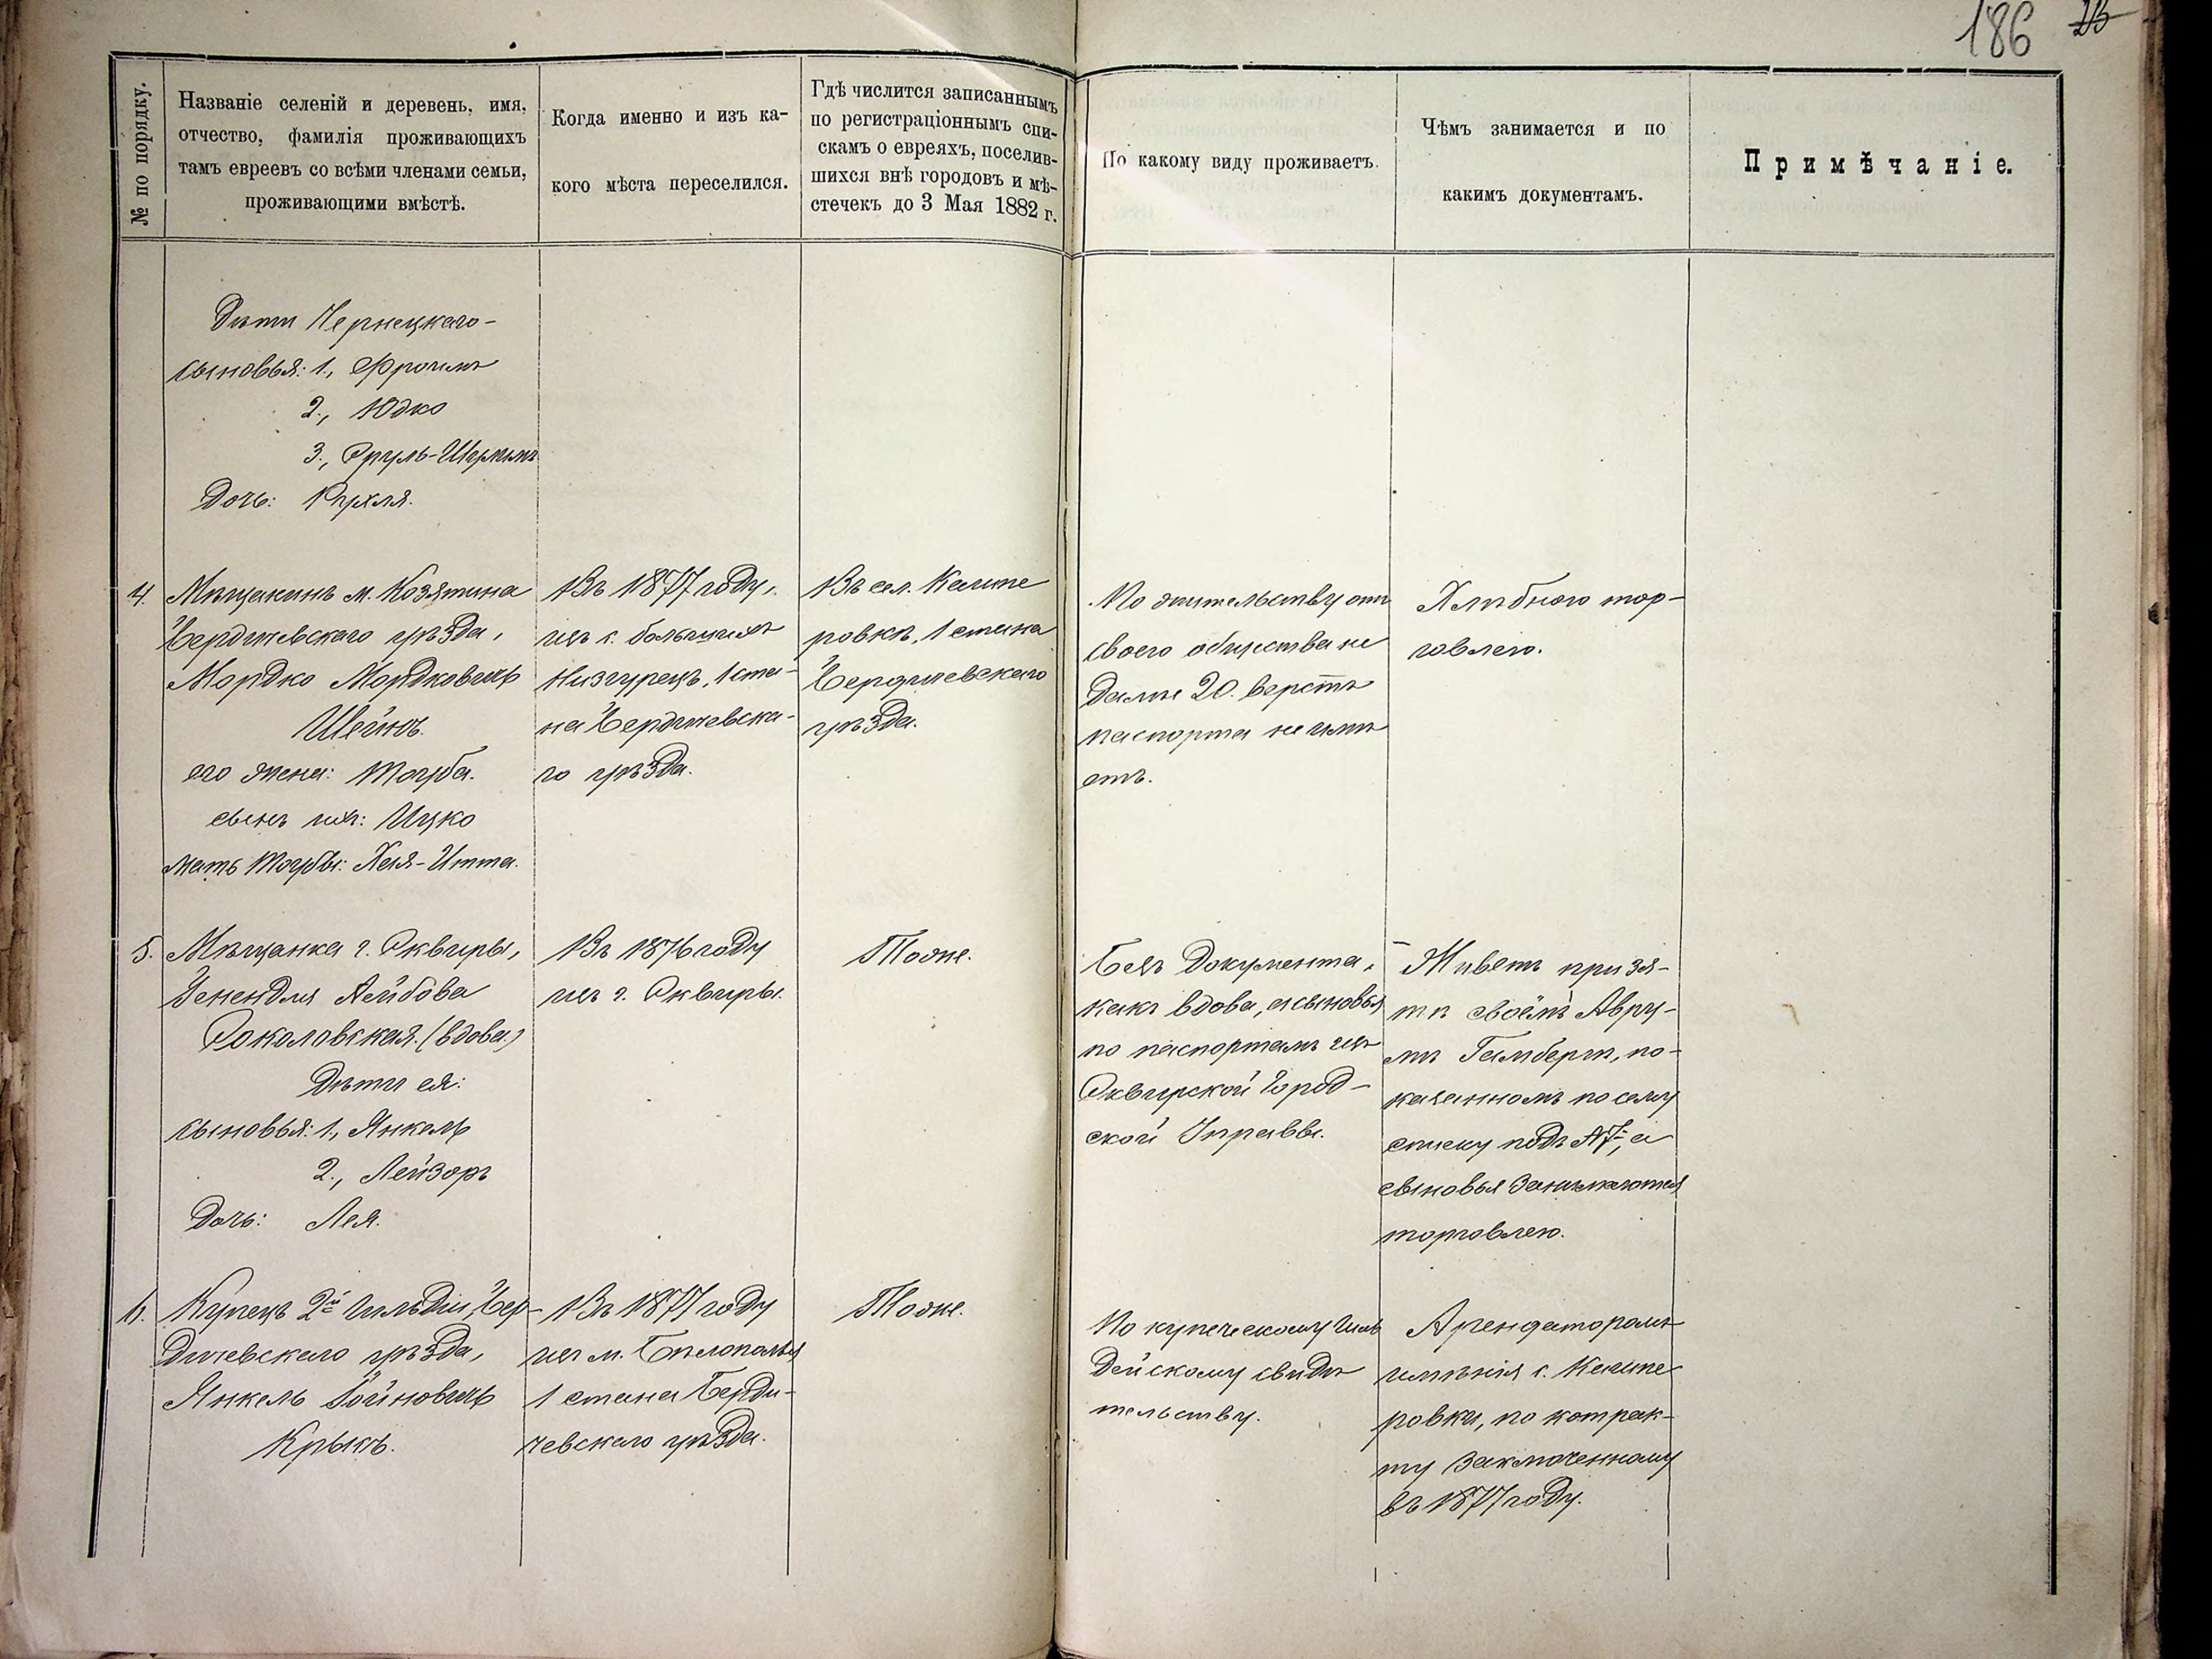 186
№ по порядку.
Названіе селеній и деревень, имя,
отчество, фамилія проживающихъ
тамъ евреевъ со всѣми членами семьи,
проживающими вмѣстѣ.
Когда именно и изъ ка-
кого мѣста переселился.
Гдѣ числится записаннымъ
по регистраціоннымъ спи-
скамъ о евреяхъ, поселив-
шихся внѣ городовъ и мѣ-
стечекъ до 3 Мая 1882 г.
По какому виду проживаетъ.
Чѣмъ занимается и по
какимъ документамъ.
Примѣчаніе.
Дѣти Чернецкаго-
сыновья: 1., Фроимъ
2., Юдко
3., Сруль-
Дочь: Рухля.
4. Мѣщанинъ м. Козятина
Бердичевскаго уѣзда,
Мордко Мордковичъ
Шейнъ.
его жена: Тоуба.
сынъ ихъ: Ицко
мать Тоубы: Хая-Итта.
Въ 1877 году,
изъ с. большихъ
Низгурецъ, 1 ста-
на Бердичевска-
го уѣзда.
Въ сел. Кашпе
ровкѣ, 1 стана
Бердичевскаго
уѣзда.
По жительству отъ
своего общества не
далѣе 20. верстъ
паспорта не имѣ
етъ.
Хлѣбною тор-
говлею.
5. Мѣщанка г. Сквиры,
Генендля Лейбова
Соколовская. (вдова.)
Дѣти ея:
сыновья: 1., Янкель
2., Лейзоръ
Дочь: Лея.
Въ 1876 году
изъ г. Сквиры.
Тоже.
Безъ документа,
какъ вдова, а сыновья
по паспортамъ изъ
Сквирской Город-
ской Управы.
Живетъ при зя-
тѣ своёмъ Авру-
мѣ Гамбергѣ, по-
казанномъ по сему
списку подъ №7, а
сыновья занимаются
торговлею.
6. Купецъ 2й Гильдіи, Бер-
дичевскаго уѣзда,
Янкель Гойновичъ
Крыкъ.
Въ 1877 году
изъ м. Бѣлополья
1 стана Берди-
чевскаго уѣзда.
Тоже.
По купеческому Гиль
дейскому свидѣ
тельству.
Арендаторомъ
имѣнія с. Кашпе
ровки, по контрак-
ту заключенному
въ 1877 году.